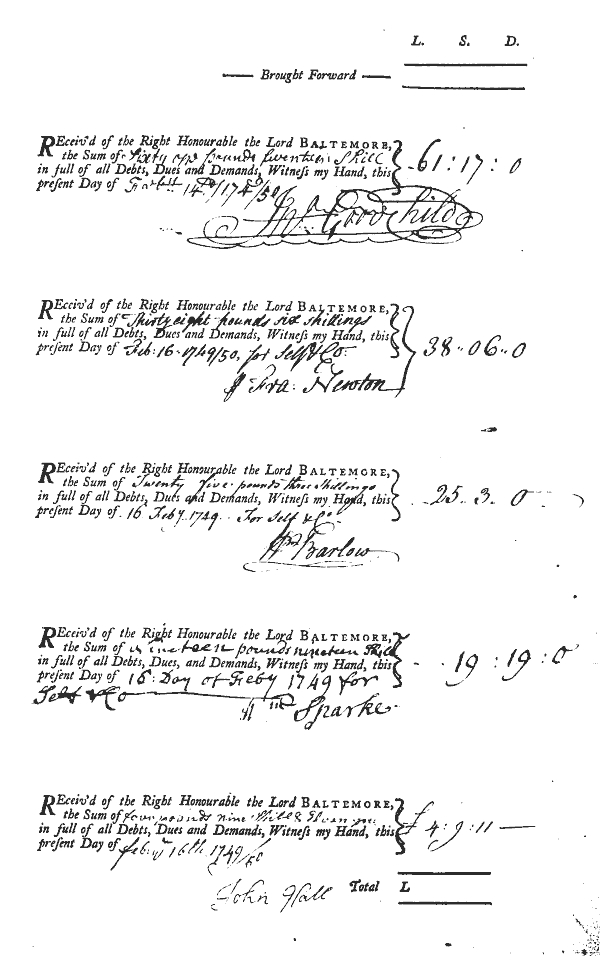 L. S. D.
Brought Forward
REceiv'd of the Right Honourable the Lord BALTEMORE,
the Sum of Sixty one pounds Seventeen Shill
in full of all Debts, Dues and Demands, Witneſs my Hand, this
preſent Day of 14 1749/50 61 : 17 : 0
Goodchild
REceiv'd of the Right Honourable the Lord BALTEMORE,
the Sum of Thirty eight pounds six shillings
in full of all Debts, Dues and Demands, Witneſs my Hand, this
preſent Day of Feb: 16. 1749/50, for Self & Co. 38 .. 06 .. 0
Fra: Newton
REceiv'd of the Right Honourable the Lord BALTEMORE,
the Sum of Twenty five pounds three shillings
in full of all Debts, Dues and Demands, Witneſs my Hand, this
preſent Day of 16 Feby. 1749. For Self & Co. 25 . 3 . 0
Wm Barlow
REceiv'd of the Right Honourable the Lord BALTEMORE,
the Sum of nineteen pounds nineteen Shill
in full of all Debts, Dues, and Demands, Witneſs my Hand, this
preſent Day of 16 Day of Feby 1749 for 19 : 19 : 0
Self & Co Sparke
REceiv'd of the Right Honourable the Lord BALTEMORE,
the Sum of four pounds nine Shill &
in full of all Debts, Dues and Demands, Witneſs my Hand, this
preſent Day of feb: 16th 1749/50 £ 4 : 9 : 11
John Hall Total L